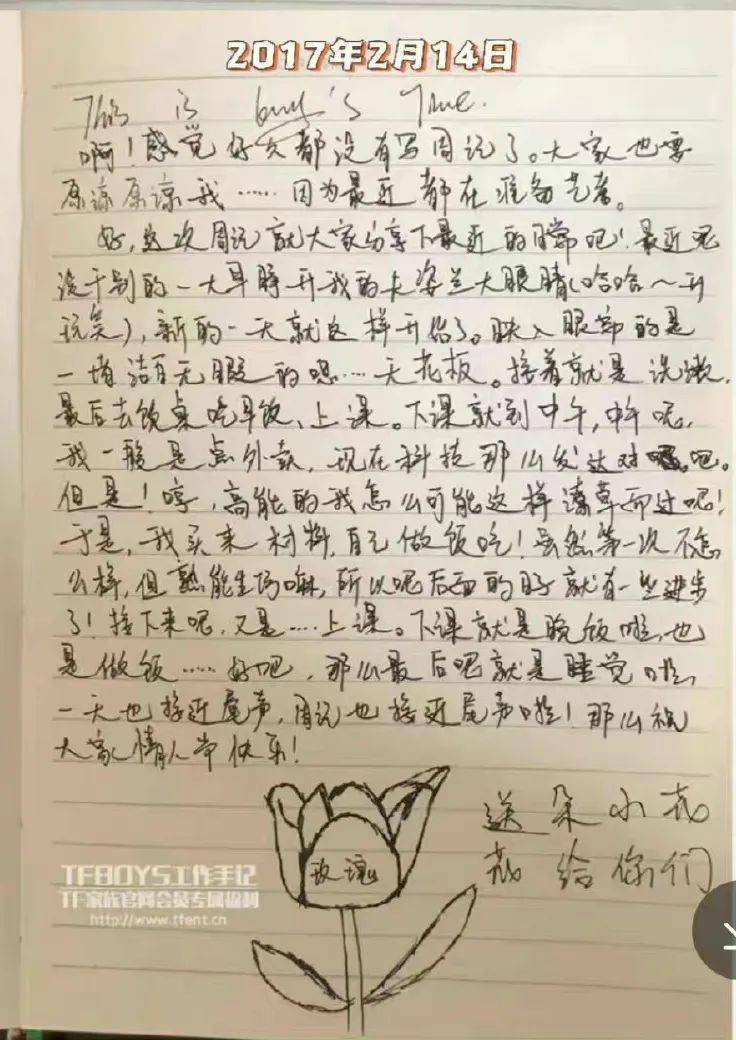 2017年2月14日
This is busy's Time.
啊！感觉好久都没有写周记了。大家也要
原谅原谅我……因为最近都在准备艺考。
好，这次周记就大家分享下最近的日常吧！最近呢
没干别的一大早睁开我的卡姿兰大眼睛（哈哈～开
玩笑），新的一天就这样开始了。映入眼帘的是
一堵洁白无暇的嗯……天花板。接着就是洗漱，
最后去饭桌吃早饭、上课。下课就到中午，中午呢，
我一般是点外卖，现在科技那么发达对吧。
但是！哼，高能的我怎么可能这样潦草而过呢！
于是，我买来材料，自己做饭吃！虽然第一次不怎
么样，但熟能生巧嘛，所以呢后面的日子就有一些进步
了！接下来呢，又是……上课。下课就是晚饭啦，也
是做饭……好吧，那么最后呢就是睡觉啦，
一天也接近尾声，周记也接近尾声啦！那么祝
大家情人节快乐！
送朵小花
花给你们
玫瑰
TFBOYS工作手记
TF家族官网会员专属福利
http://www.tfent.cn